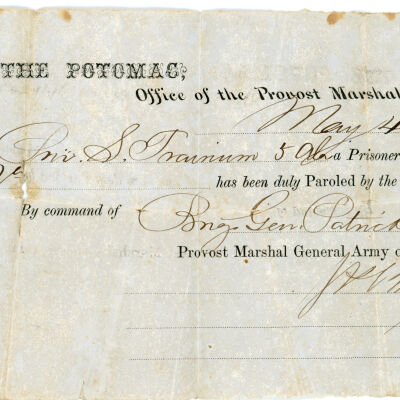 THE POTOMAC,
Office of the Provost Marshal
May 4
S. Trainum 5 a Prisoner
has been duly Paroled by the
By command of Brig. Gen. Patrick
Provost Marshal General Army o